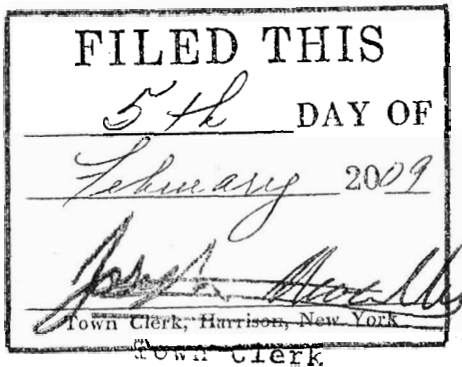 FILED THIS
5th DAY OF
February 2009
Town Clerk, Harrison, New York
Town Clerk